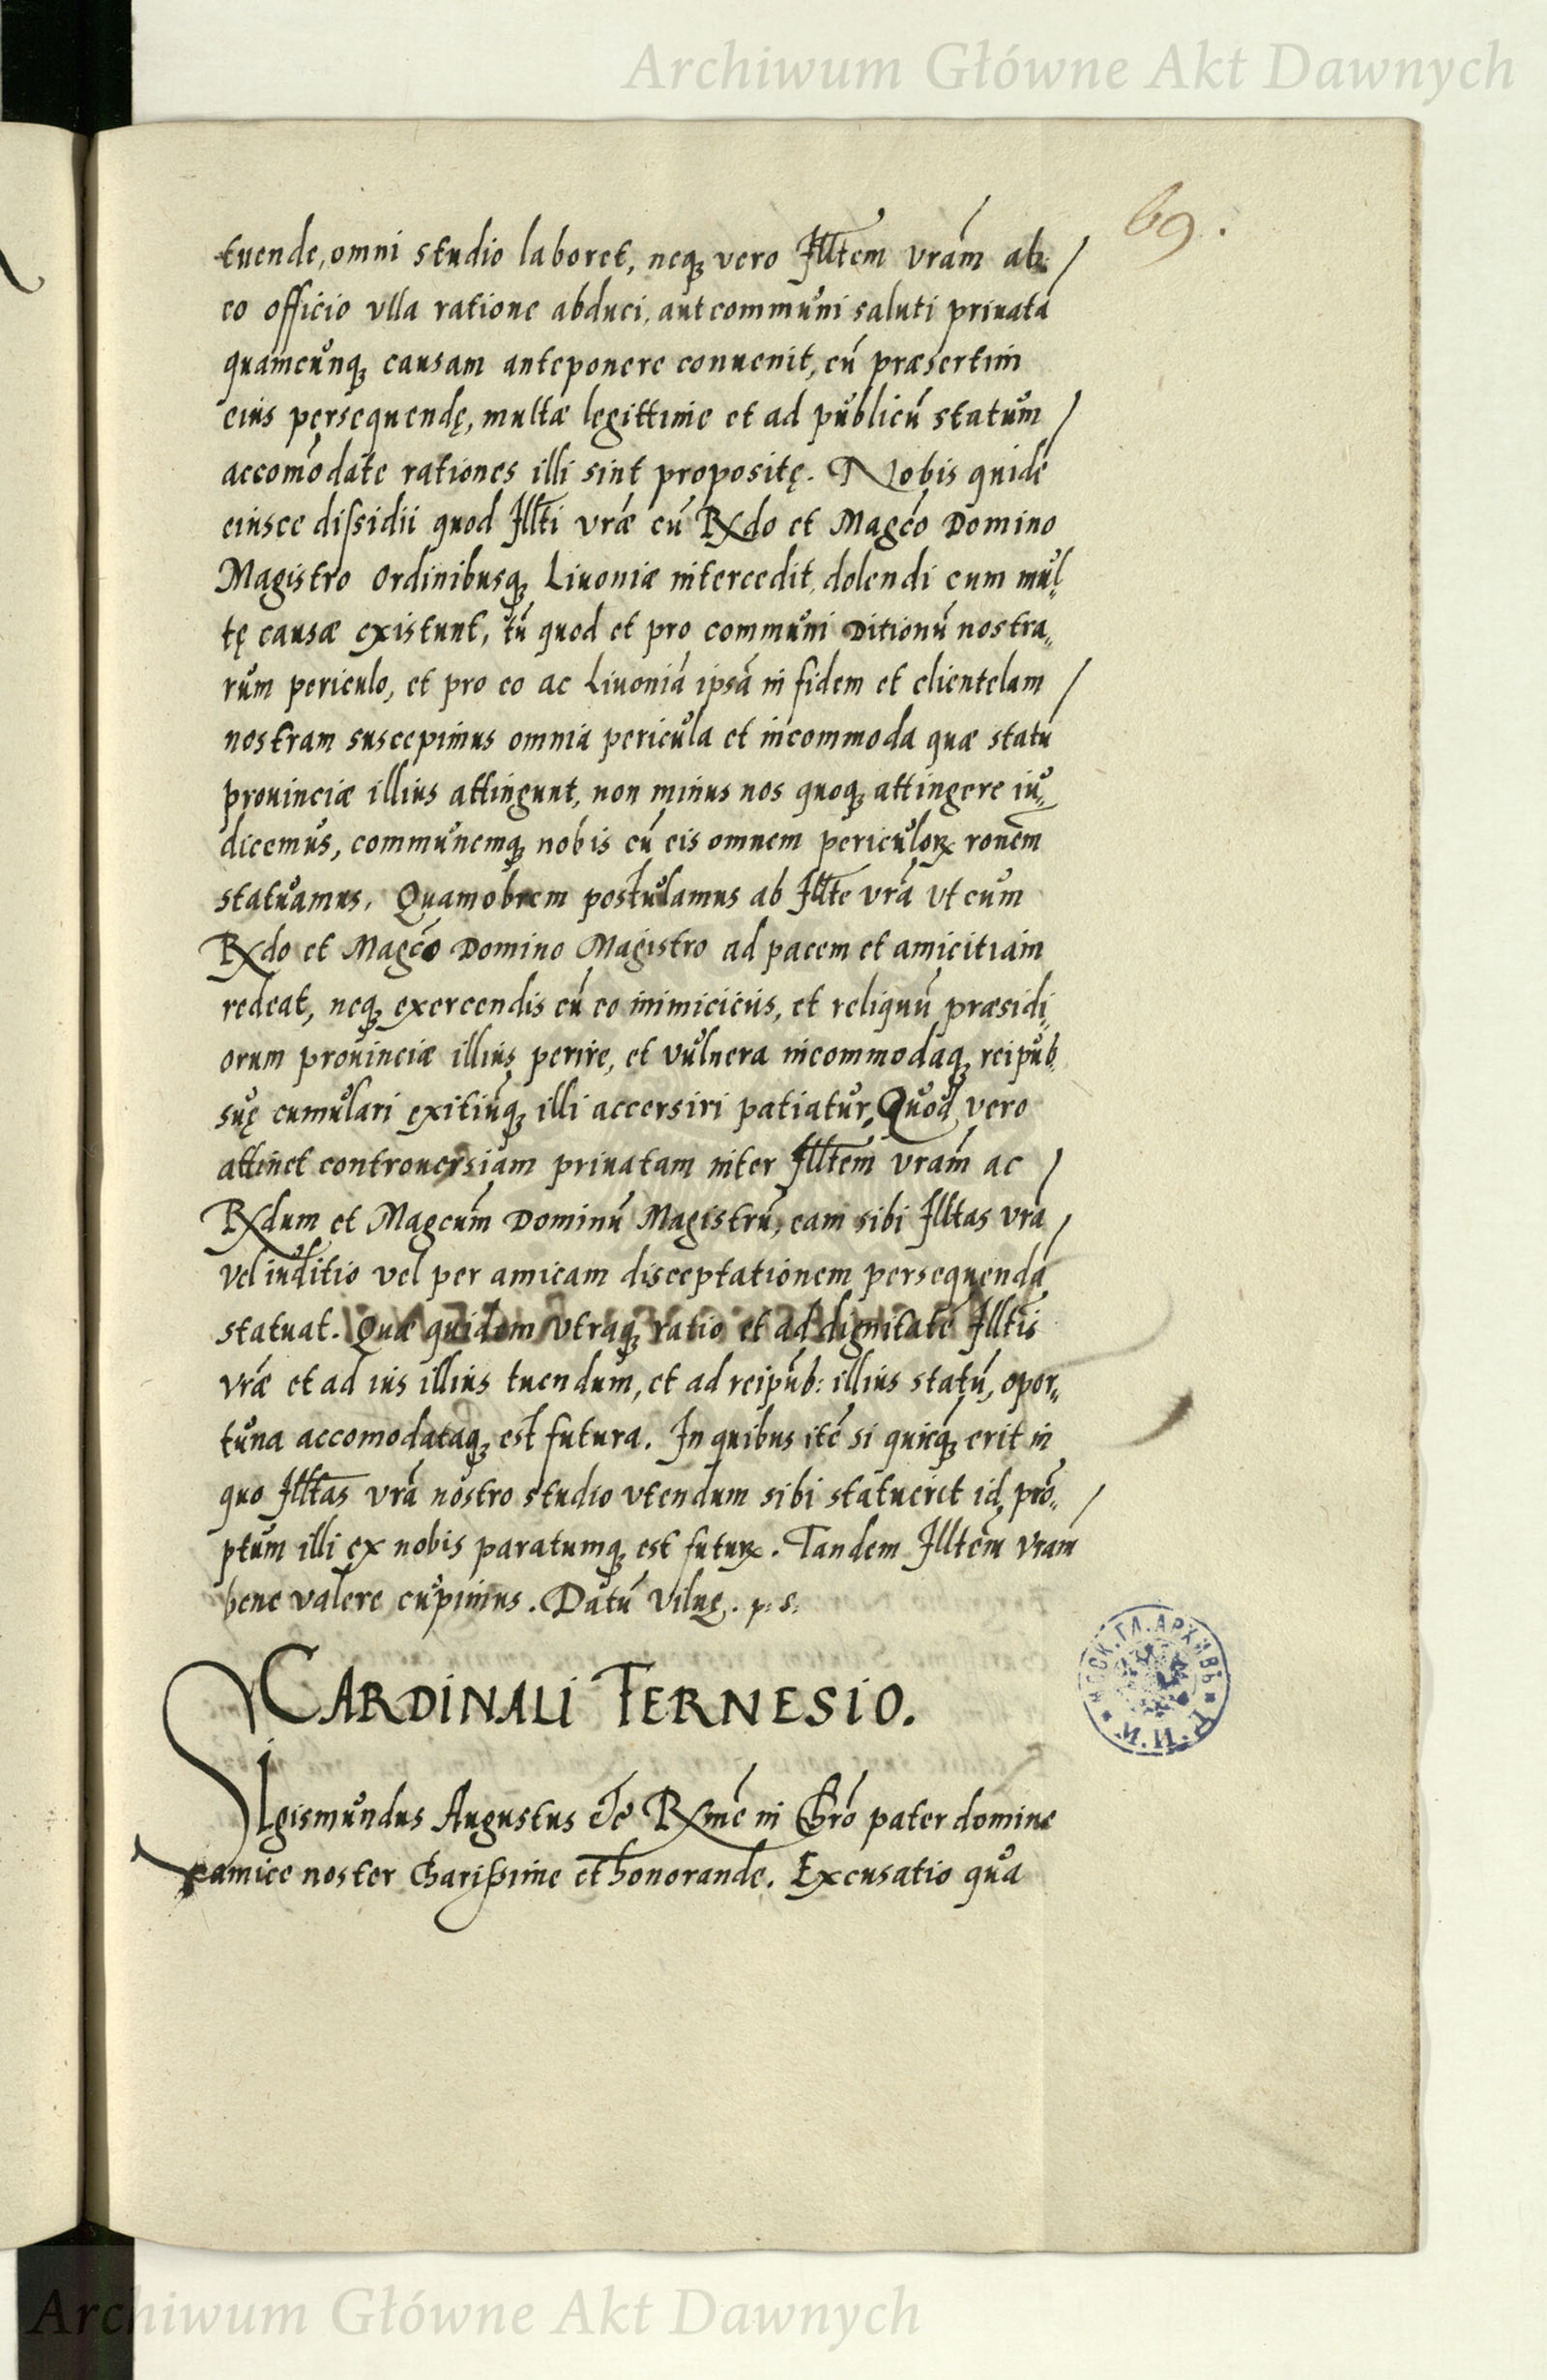 Archiwum Główne Akt Dawnych
69.
tuende, omni studio laboret, neq₃ vero Illtem vrām ab
eo officio vlla ratione abduci, aut communi saluti priuatā
quamcunq₃ causam anteponere conuenit, cū præsertim
eius persequendę, multæ legittime et ad publicū statum
accomōdate rationes illi sint propositę. Nobis quidē
eiusce dissidii quod Illti vrǣ cū Rxdo et Magcō Domino
Magistro ordinibusq₃ Liuoniæ intercedit, dolendi cum mul„
tę causæ existunt, tū quod et pro communi Ditionū nostra„
rum periculo, et pro eo ac Liuoniā ipsā in fidem et clientelam
nostram suscepimus omnia pericula et incommoda quæ statū
prouinciæ illius attingunt, non minus nos quoq₃ attingere iu„
dicemus, communemq₃ nobis cū eis omnem periculoꝝ ronem
statuamus. Quamobrem postulamus ab Illte vrā vt cum
Rxdo et Magcō Domino Magistro ad pacem et amicitiam
redeat, neq₃ exercendis cū eo inimiciciis, et reliquū præsidi„
orum prouinciæ illius perire, et vulnera incommodaq₃ reipub.
suę cumulari exitiūq₃ illi accersiri patiatur. Quod vero
attinet controuersiam priuatam inter Illtem vrām ac
Rxdum et Magcum Dominū Magistrū, eam sibi Illtas vrā
vel iuditio vel per amicam disceptationem persequendā
statuat. Quæ quidem vtraq₃ ratio et ad dignitatē Illtis
vrǣ et ad ius illius tuendum, et ad reipub: illius statū, opor„
tuna accomodataq₃ est futura. In quibus itē si quicq₃ erit in
quo Illtas vrā nostro studio vtendum sibi statuerit id prō„
ptum illi ex nobis paratumq₃ est futuꝝ. Tandem Illtem vram
bene valere cupimus. Datū Vilnę. p: s:
CARDINALI FERNESIO.
Sigismundus Augustus etc Rxme in Chrō pater domine
amice noster charissime et honorande. Excusatio qua
МОСК. ГЛ. АРХИВЪ * М. И. Д. *
Archiwum Główne Akt Dawnych